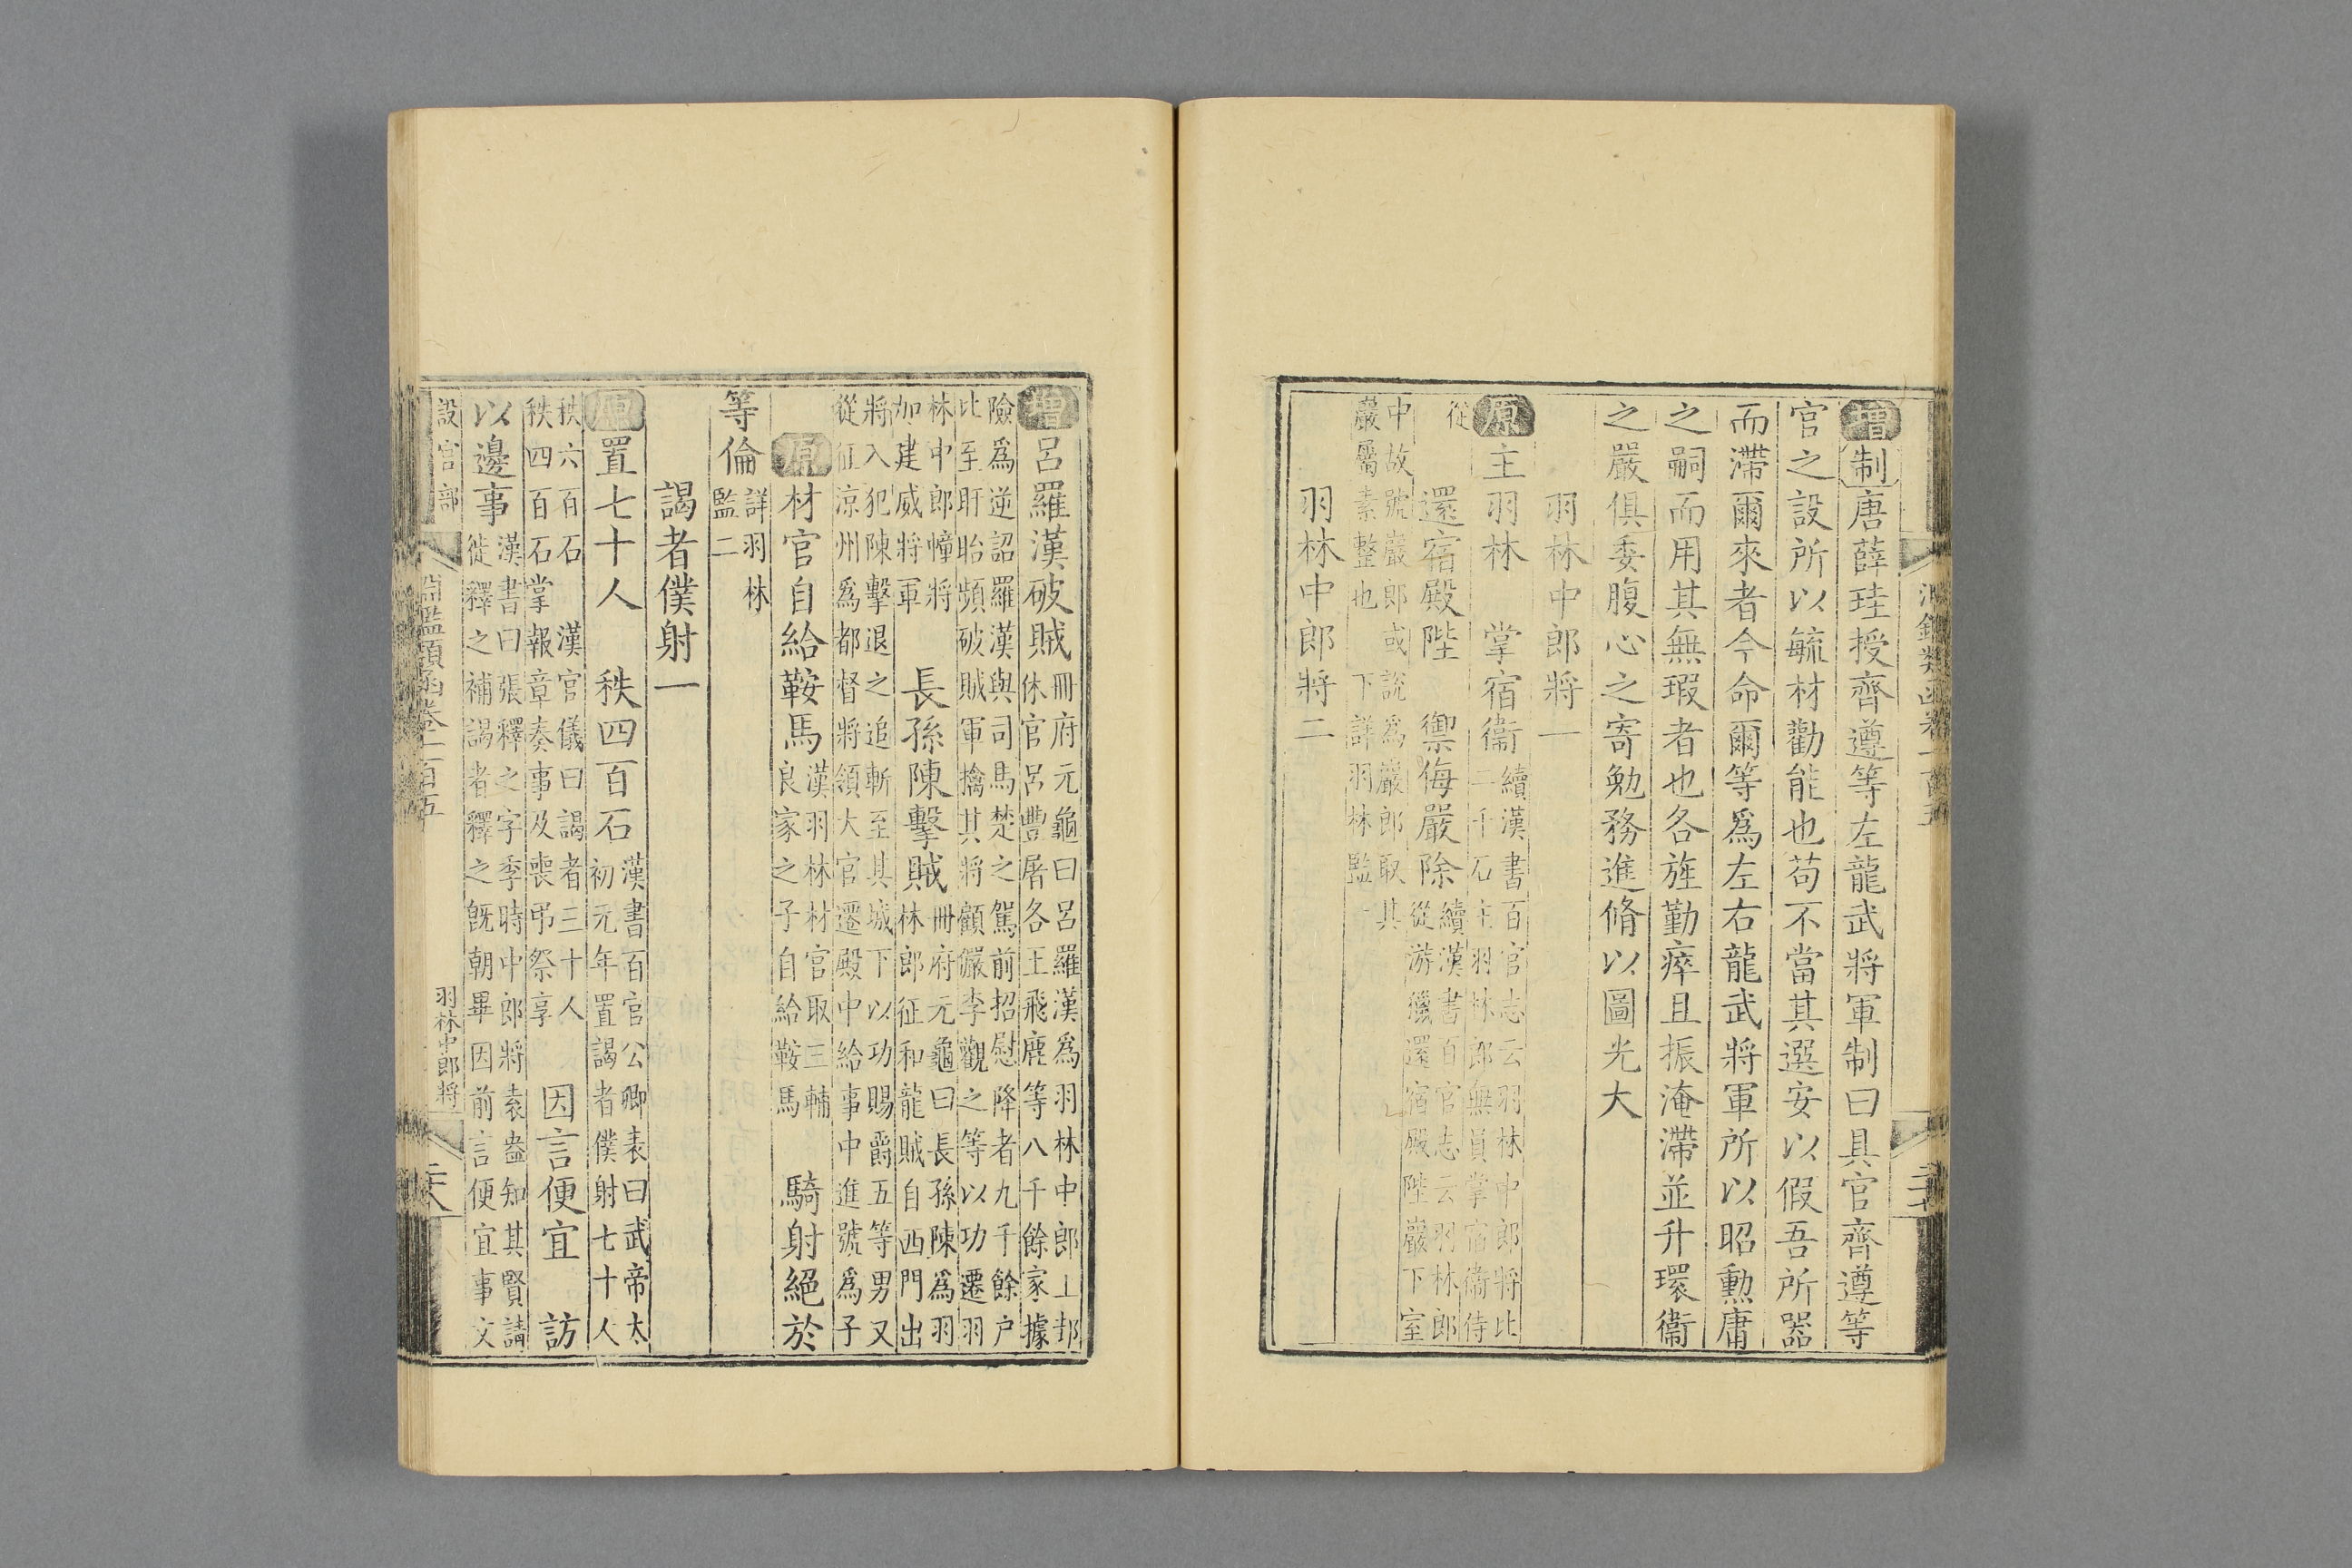 淵鑑類函卷一百五
增制唐薛珪授齊遵等左龍武將軍制曰具官齊遵等
官之設所以毓材勸能也苟不當其選安以假吾所器
而滯爾來者今命爾等爲左右龍武將軍所以昭勲庸
之嗣而用其無瑕者也各旌勤瘁且振淹滯並升環衞
之嚴俱委腹心之寄勉務進脩以圖光大
羽林中郎將一
原主羽林 掌宿衞
續漢書百官志云羽林中郎將比
二千石主羽林郎無員掌宿衞侍
從
還宿殿陛 禦侮嚴除
續漢書百官志云羽林郎
從游獵還宿殿陛巖下室
中故號巖郎或說爲巖郎取其
嚴厲素整也 下詳羽林監一
羽林中郎將二
增呂羅漢破賊
冊府元龜曰呂羅漢爲羽林中郎上邽
休官呂豐屠各王飛鹿等八千餘家據
險爲逆詔羅漢與司馬楚之駕前招慰降者九千餘户
比至盱眙頻破賊軍擒其將顧儼李觀之等以功遷羽
林中郎幢將
加建威將軍
長孫陳擊賊
冊府元龜曰長孫陳爲羽
林郎征和龍賊自西門出
將入犯陳擊退之追斬至其城下以功賜爵五等男又
從征涼州爲都督將領大官遷殿中給事中進號爲子
原材官自給鞍馬
漢羽林材官取三輔
良家之子自給鞍馬
騎射絕於
等倫
詳羽林
監二
謁者僕射一
原置七十人 秩四百石
漢書百官公卿表曰武帝太
初元年置謁者僕射七十人
秩六百石 漢官儀曰謁者三十人
秩四百石掌報章奏事及喪弔祭享
因言便宜 訪
以邊事
漢書曰張釋之字季時中郎將袁盎知其賢請
徙釋之補謁者釋之既朝畢因前言便宜事文
設官部
羽林中郎將
淵鑑類函卷一百五
二十八